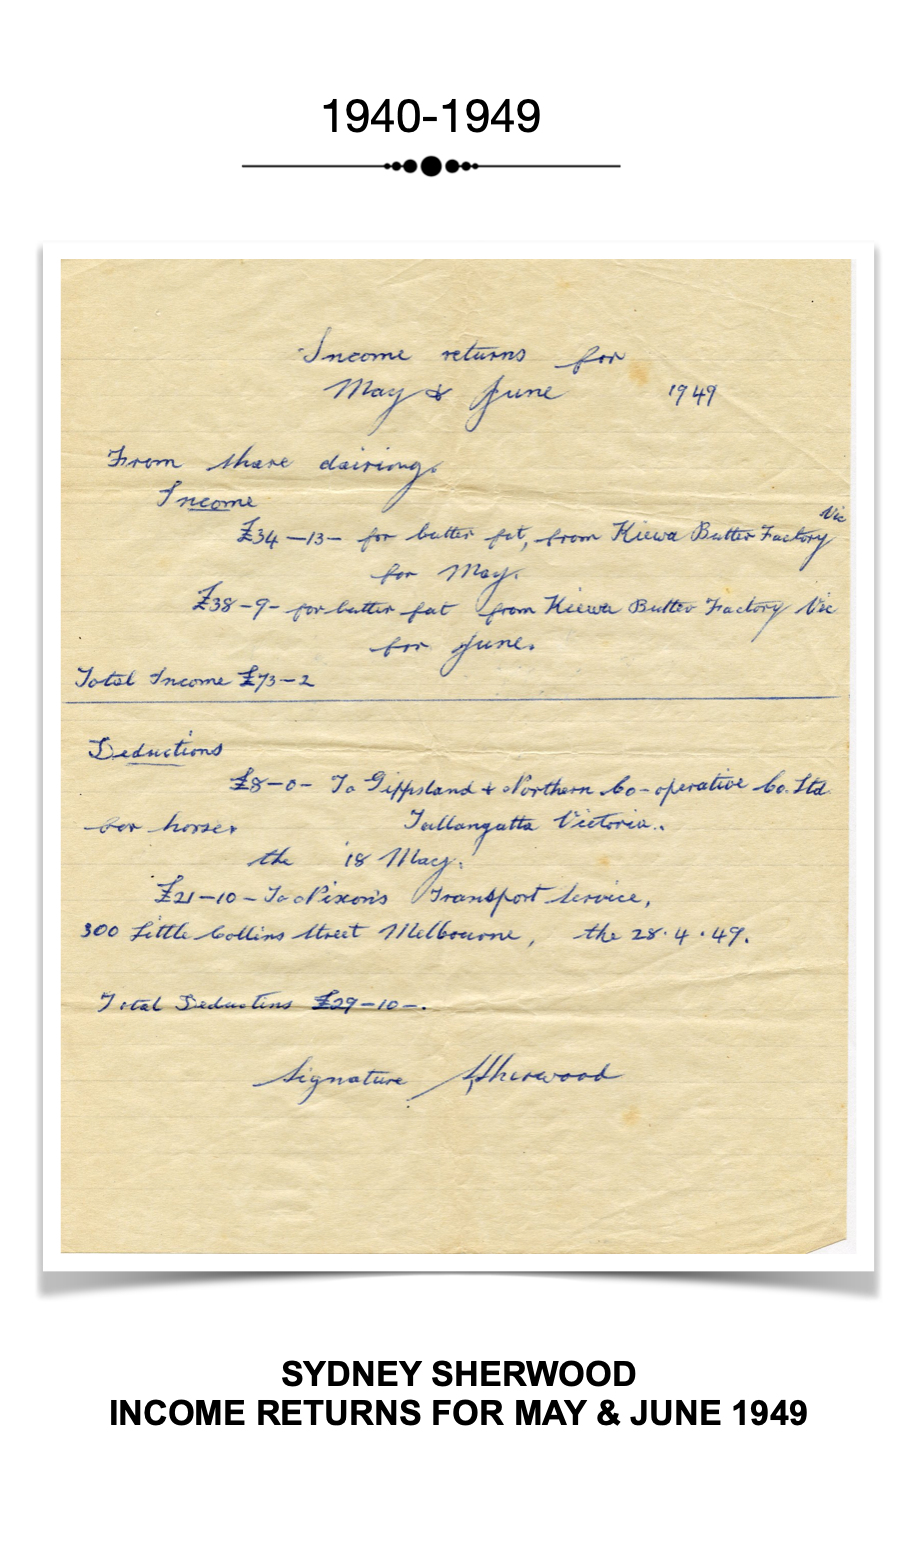 1940-1949
Income returns for
May & June 1949
From share dairiong.
Income
Vic
£34-13- for butter fat, from Kiewa Butter Factory
for May.
£38-9- for butter fat from Kiewa Butter Factory Vic
for June.
Total Income £73-2
Deductions
£8-0- To Gippsland & Northern Co-operative Co. Ltd
for horse Tallangatta Victoria..
the 18 May.
£21-10- To Nixon's Transport Service,
300 Little Collins Street Melbourne, the 28.4.49.
Total Deductins £29-10-.
Signature SSherwood
SYDNEY SHERWOOD
INCOME RETURNS FOR MAY & JUNE 1949